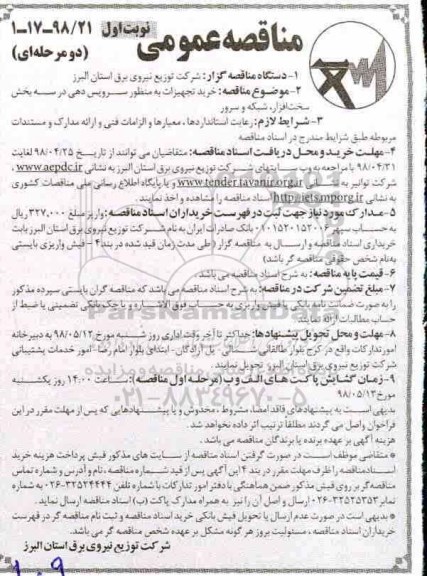 مناقصه عمومی
نوبت اول
۱-۱۷-۹۸/۲۱
(دو مرحله‌ای)
۱-دستگاه مناقصه گزار: شرکت توزیع نیروی برق استان البرز
۲-موضوع مناقصه: خرید تجهیزات به منظور سرویس دهی در سه بخش
سخت‌افزار، شبکه و سرور
۳-شرایط لازم: رعایت استانداردها، معیارها و الزامات فنی و ارائه مدارک و مستندات
مربوطه طبق شرایط مندرج در اسناد مناقصه
۴-مهلت خرید و محل دریافت اسناد مناقصه: متقاضیان می توانند از تاریخ ۹۸/۰۴/۲۵ لغایت
۹۸/۰۴/۳۱ با مراجعه به سایتهای شرکت توزیع نیروی برق استان البرز به نشانی www.aepdc.ir،
شرکت توانیر به نشانی www.tender.tavanir.org.ir و یا پایگاه اطلاع رسانی ملی مناقصات کشوری
به نشانی http://iets.mporg.ir اسناد مناقصه را مشاهده و اخذ نمایند.
۵-مدارک مورد نیاز جهت ثبت در فهرست خریداران اسناد مناقصه: واریز مبلغ ۳۲۷,۰۰۰ ریال
به حساب سپهر ۰۱۰۱۵۲۰۱۵۲۰۰۶ بانک صادرات ایران به نام شرکت توزیع نیروی برق استان البرز بابت
خریداری اسناد مناقصه و ارسال به مناقصه گزار (طی مدت زمان قید شده در بند ۴ - فیش واریزی بایستی
به‌نام شخص حقوقی مناقصه گر باشد)
۶-قیمت پایه مناقصه: به شرح اسناد مناقصه می باشد
۷-مبلغ تضمین شرکت در مناقصه: به شرح اسناد مناقصه می باشد که مناقصه گران بایستی سپرده مذکور
را به صورت ضمانت نامه بانکی یا فیش واریزی به حساب فوق الاشاره و یا چک بانکی تضمینی یا ضبط از
حساب مطالبات ارائه نمایند.
۸-مهلت و محل تحویل پیشنهادها: حداکثر تا آخر وقت اداری روز شنبه مورخ ۹۸/۰۵/۱۲ به دبیرخانه
امور تدارکات واقع در کرج بلوار طالقانی شمالی- پل آزادگان- ابتدای بلوار امام رضا- امور خدمات پشتیبانی
شرکت توزیع نیروی برق استان البرز تحویل نمایند.
۹-زمان گشایش پاکت های الف و ب (مرحله اول مناقصه): ساعت ۱۴:۰۰ روز یکشنبه
مورخ ۹۸/۰۵/۱۳
بدیهی است به پیشنهادهای فاقد امضا، مشروط، مخدوش و یا پیشنهادهایی که پس از مهلت مقرر در این
فراخوان واصل می گردند مطلقا ترتیب اثر داده نخواهد شد.
هزینه آگهی بر عهده برنده یا برندگان مناقصه می باشد.
* متقاضی موظف است در صورت گرفتن اسناد مناقصه از سایت های مذکور فیش پرداخت هزینه خرید
اسناد مناقصه را ظرف مهلت مقرر در بند ۴ این آگهی پس از قید شماره مناقصه، نام و آدرس و شماره تماس
مناقصه گر بر روی فیش مذکور ضمن هماهنگی با دفتر امور تدارکات با شماره تلفن ۳۲۵۲۴۴۴۴-۰۲۶ به شماره
نمابر ۳۲۵۲۵۳۵۳-۰۲۶ ارسال و اصل آن را نیز به همراه مدارک پاکت (ب) اسناد مناقصه ارسال نماید.
* بدیهی است در صورت عدم ارسال یا تحویل فیش بانکی خرید اسناد مناقصه و ثبت نام مناقصه گر در فهرست
خریداران اسناد مناقصه، مسئولیت بروز هر گونه مشکل بر عهده شخص مناقصه گر می باشد.
شرکت توزیع نیروی برق استان البرز
۱۰۹
ParsNamadData
۰۲۱-۸۸۳۴۹۶۷۰-۵